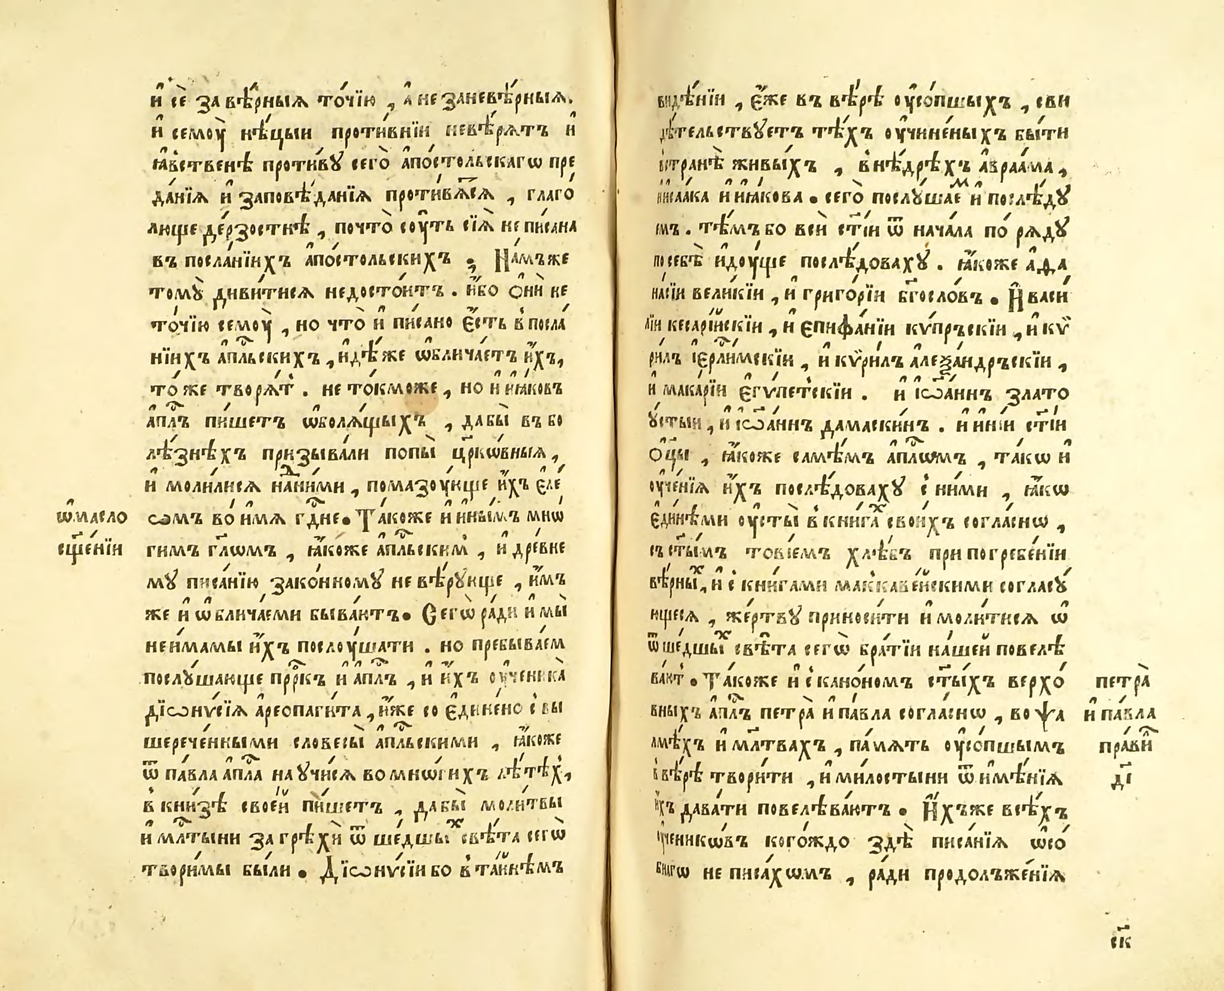 и҆ сѐ за вѣ́рныѧ то́чїю , а҆ не заневѣ́рныѧ.
и҆ семоу̀ нѣ́цыи проти́внїи невѣ́рѧтъ и҆
ꙗ҆́вственѣ проти́вꙋ сего̀ а҆постольскагѡ пре
да́нїѧ и҆ заповѣ́данїѧ проти́вѧ́сѧ , глаго́
люще де́рзостнѣ , почто̀ соу́ть сїѧ̀ не пи́сана
въ посла́нїихъ а҆постольскихъ ; На́мъже
томꙋ̀ диви́тисѧ недосто́итъ . и҆́бо ѻ҆нѝ не
то́чїю семоу̀ , но что̀ и҆ пи́сано є҆́сть в посла́
нїихъ а҆пⷭ҇льскихъ , и҆дѣ́же ѡ҆блича́етъ и҆́хъ,
то́же творѧ́тъ . не то́кможе , но и҆ и҆ꙗ҆́ковъ
а҆пⷭ҇лъ пи́шетъ ѡ҆болѧ́щыхъ , дабы̀ въ бо
лѣ́знѣхъ призыва́ли попы̀ цр҃ко́вныѧ ,
и҆ моли́лисѧ на́дними , помазоу́юще и҆́хъ є҆ле́
сѻмъ во и҆́мѧ гдⷭ҇не. Та́коже и҆ и҆ны́мъ мнѡ́
ѡ҆масло
гимъ гл҃ѡмъ , ꙗ҆́коже а҆пⷭ҇льским , и҆ дре́вне
сщ҃е́нїи
мꙋ писа́нїю зако́нномꙋ не вѣ́рꙋюще , и҆́мъ
же и҆ ѡ҆блича́еми быва́ютъ. Сегѡ̀ ра́ди и҆ мы̀
неи́мамы и҆́хъ послоу́шати . но пребыва́ем
послꙋшающе прⷪ҇ркъ и҆ а҆пⷭ҇лъ , и҆ и҆́хъ оу҆ченика
дїѻни́сїѧ а҆реопаги́та , и҆́же со є҆дине́но с вы
шерече́нными словесы̀ а҆пⷭ҇льскими , ꙗ҆́коже
ѿ па́вла а҆пⷭ҇ла научи́сѧ во мно́гихъ лѣ́тѣх,
в кни́зѣ свое́й пи́шетъ , дабы̀ моли́твы
и҆ млⷭ҇тыни за грѣхѝ ѿ ше́дшыⷯ свѣ́та сегѡ̀
твори́мы были . Дїѻни́сїи бо в та́йнѣмъ
видѣ́нїи , є҆́же въ вѣ́рѣ оу҆со́пшыхъ , сви
дѣ́тельствꙋетъ тѣ́хъ оу҆чине́ныхъ бы́ти
встранѣ̀ живы́хъ , в нѣ́дрѣхъ а҆враа́ма ,
и҆и҆саа́ка и҆ и҆ꙗ҆́кова . сего̀ послꙋ́шаеⷨ и҆ послѣ́дꙋ
емъ . тѣ́мъ бо всѝ ст҃і́и ѿ нача́ла по рѧ́дꙋ
посебѣ̀ и҆дꙋ́ще послѣ́довахꙋ . ꙗ҆́коже а҆фа
на́сїи вели́кїи , и҆ григо́рїи бг҃осло́въ . И҆ васи́
лїи кесарі́йскїи , и҆ є҆пифа́нїи ки́пръскїи , и҆ кѷ́
рилъ і҆ерⷭ҇ли́мскїи , и҆ кѷ́рилъ алеѯа́ндръскїи ,
и҆ мака́рїи є҆ги́петскїи . и҆ і҆ѡа́ннъ злато
ꙋ́стыи , и҆ і҆ѡа́ннъ дама́скинъ . и҆ и҆нїи ст҃і́и
ѻ҆ц҃ы̀ , ꙗ҆́коже самѣ́мъ а҆пⷭ҇лѡмъ , та́кѡ и҆
оу҆че́нїѧ и҆́хъ послѣ́довахꙋ с ни́ми , ꙗ҆́кѡ
є҆ди́нѣми оу҆сты̀ в кни́гаⷯ свои́хъ согла́снѡ ,
съ ст҃ы́мъ тові́емъ хлѣ́бъ при погребе́нїи
вѣ́рныⷯ, и҆ с кни́гами маккаве́йскими согласꙋ́
ющесѧ , же́ртвꙋ приноси́ти и҆ моли́тисѧ ѡ҆
ѿше́дшыⷯ свѣ́та сегѡ̀ бра́тїи на́шей повелѣ
ва́ют . Та́коже и҆ с кано́номъ ст҃ы́хъ верхо́
петра̀
вныхъ а҆пⷭ҇лъ петра̀ и҆ па́вла согла́снѡ , во ѱа
и҆ па́вла
лмѣ́хъ и҆ млⷭ҇твахъ , па́мѧть оу҆со́пшымъ
пра́виⷧ
в вѣ́рѣ твори́ти , и҆ ми́лостыни ѿ и҆мѣ́нїѧ
д҃і
и҆́хъ дава́ти повелѣва́ютъ . И҆́хъже всѣ́хъ
оу҆ченикѡ́въ когождо здѣ̀ писа́нїѧ ѡ҆со́
бнагѡ не писа́хѡмъ , ра́ди продолъже́нїѧ
ск҃